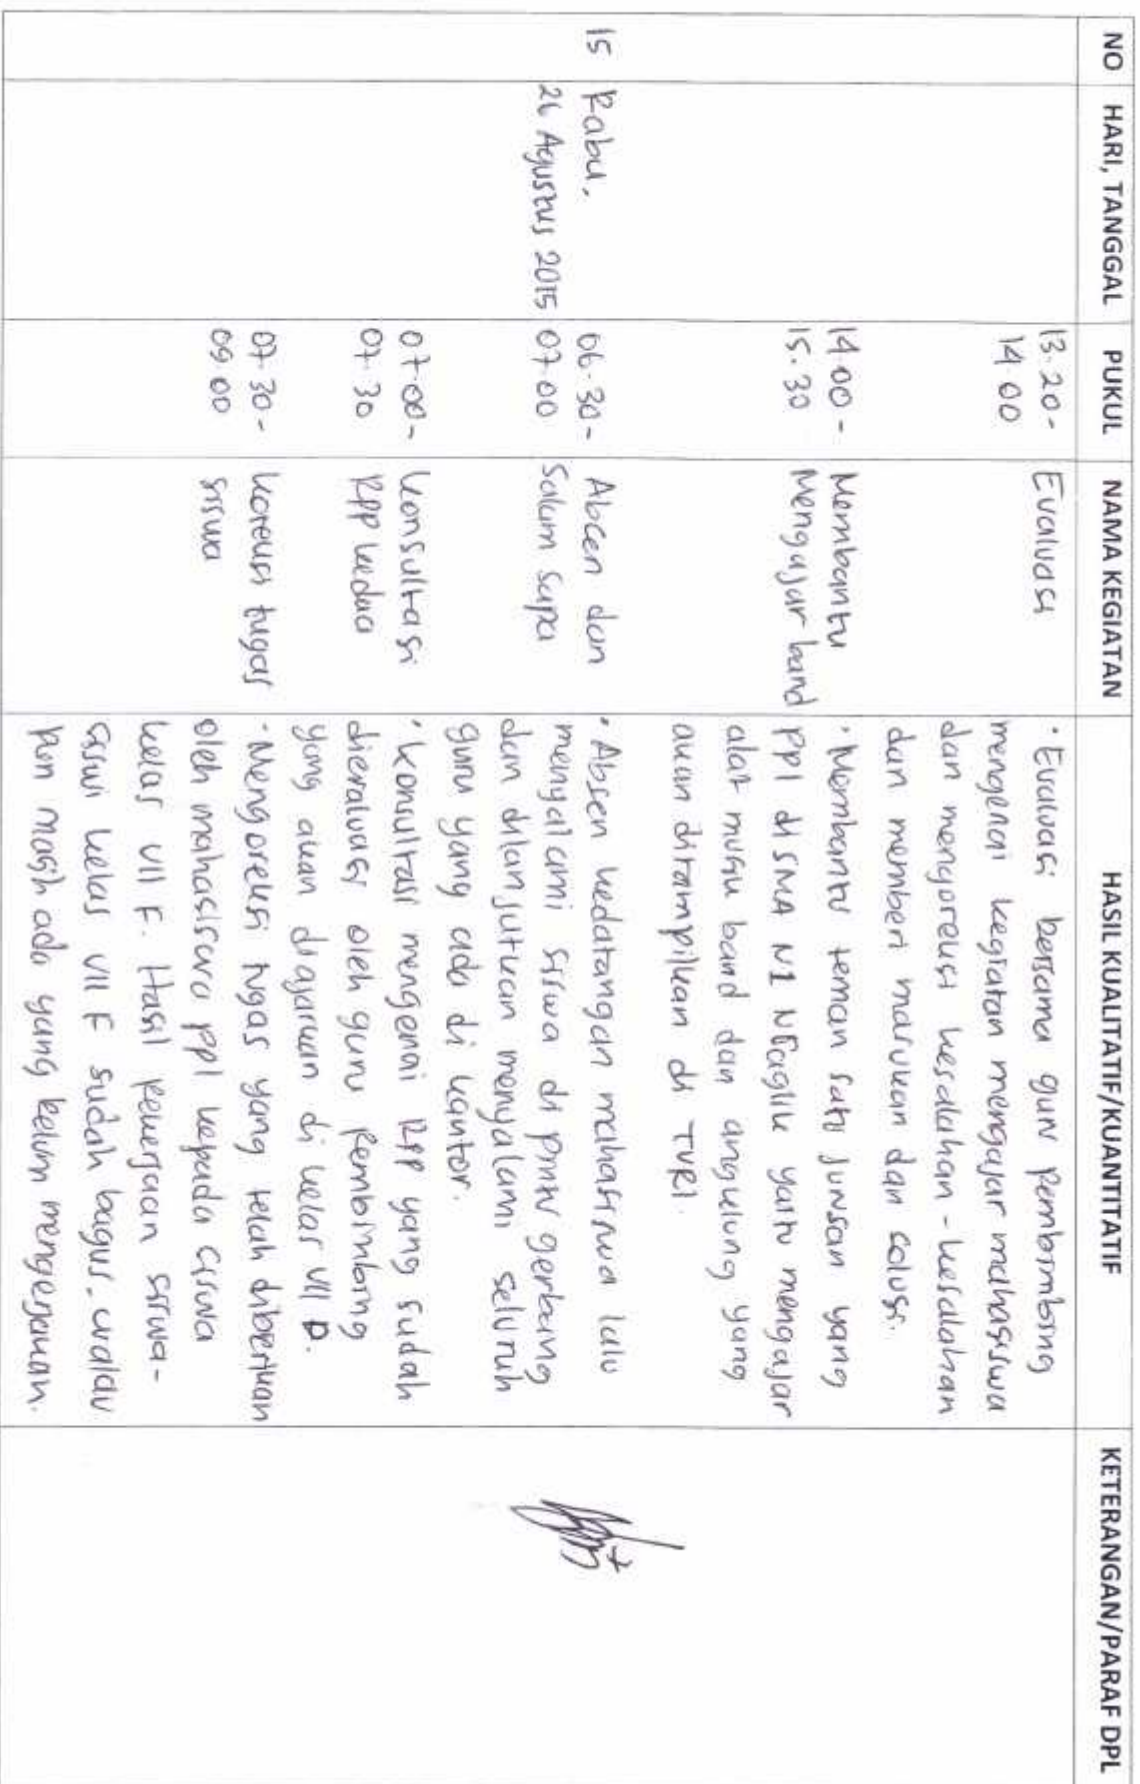 NO HARI, TANGGAL PUKUL NAMA KEGIATAN HASIL KUALITATIF/KUANTITATIF KETERANGAN/PARAF DPL
13.20- Evaluasi · Evaluasi bersama guru pembimbing
14.00 mengenai kegiatan mengajar mahasiswa
dan mengoreksi kesalahan-kesalahan
dan memberi masukan dan solusi.
14.00- Membantu · Membantu teman satu jurusan yang
15.30 mengajar band PPl di SMA N1 Ngaglik yaitu mengajar
alat musik band dan angklung yang
akan ditampilkan di TVRI.
15 Rabu, 06.30- Abcen dan · Absen kedatangan mahasiswa lalu
26 Agustus 2015 07.00 Salam sapa menyalami siswa di pintu gerbang
dan dilanjutkan menyalami seluruh
guru yang ada di kantor.
07.00- Konsultasi · Konsultasi mengenai RPP yang sudah
07.30 RPP kedua dievaluasi oleh guru Pembimbing
yang akan diajarkan di kelas VII D.
07.30- Koreksi tugas · Mengoreksi tugas yang telah diberikan
09.00 siswa oleh mahasiswa ppl kepada siswa
kelas VII F. Hasil pekerjaan siswa-
siswi kelas VII F sudah bagus, walau
pun masih ada yang belum mengerjakan.